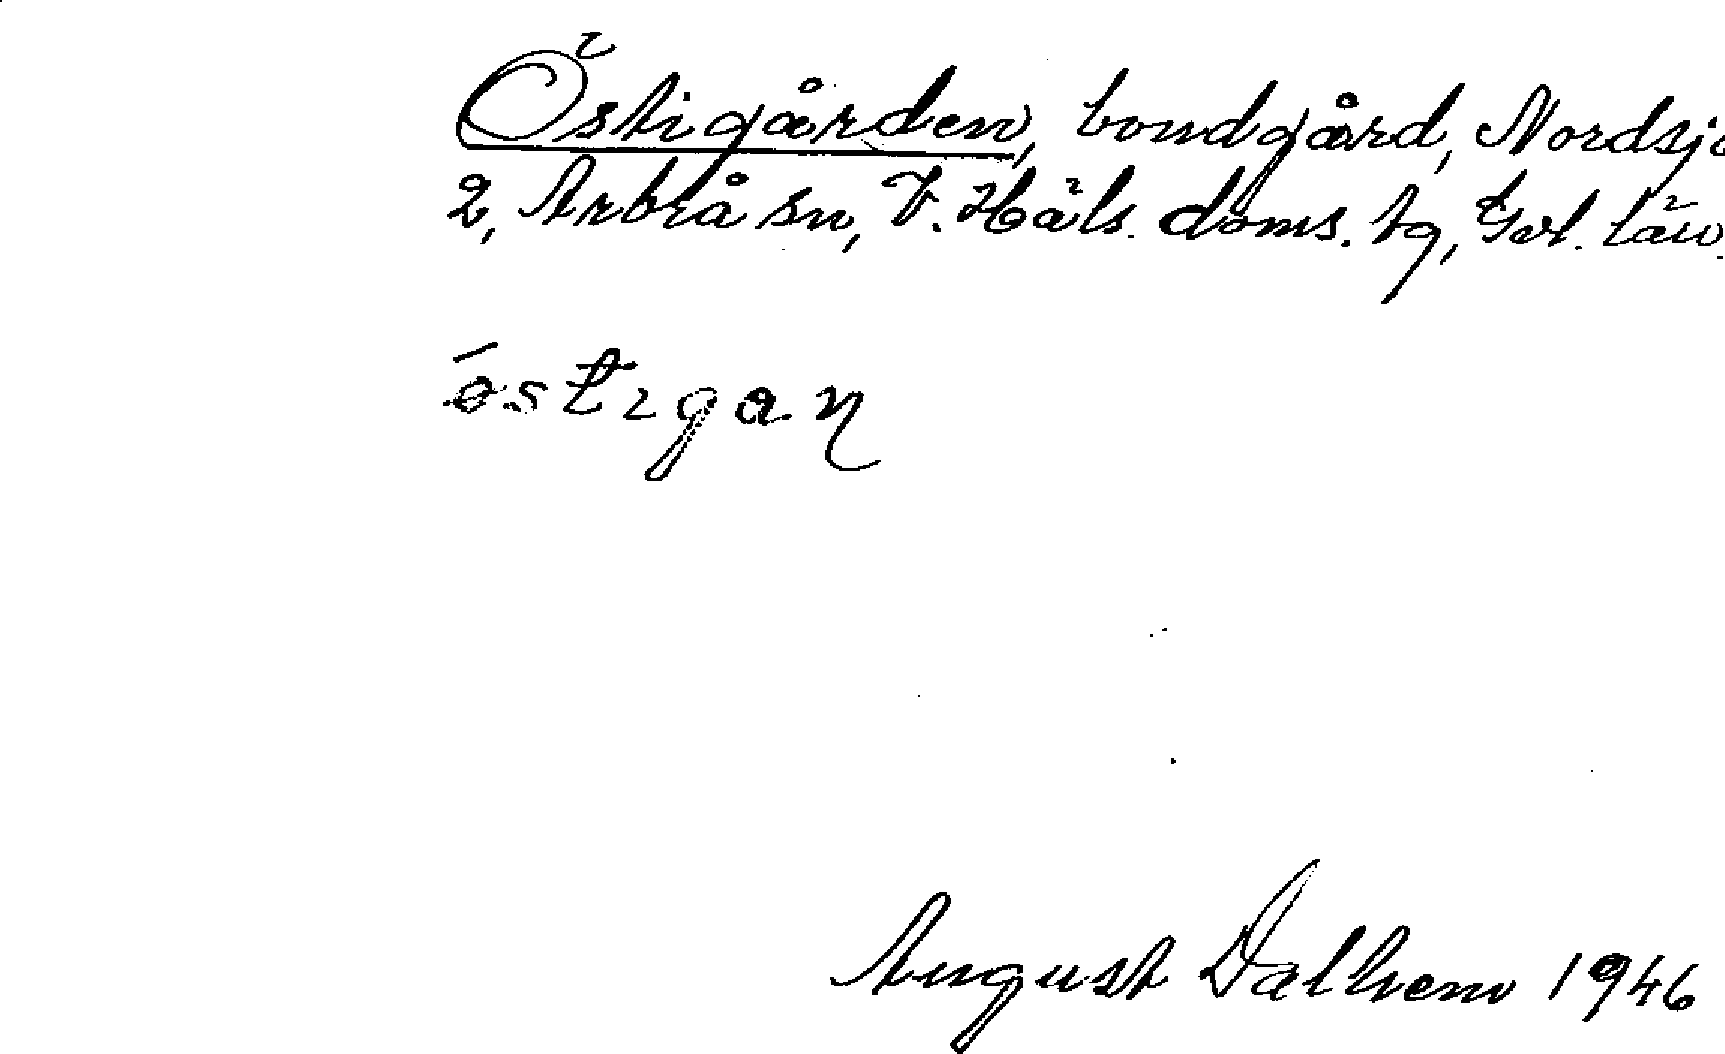 Östigården, bondgård, Nordsjö
2, Arbrå sn, V. Häls. doms. tg, Gvl. län.
östigan
August Dalhem 1946